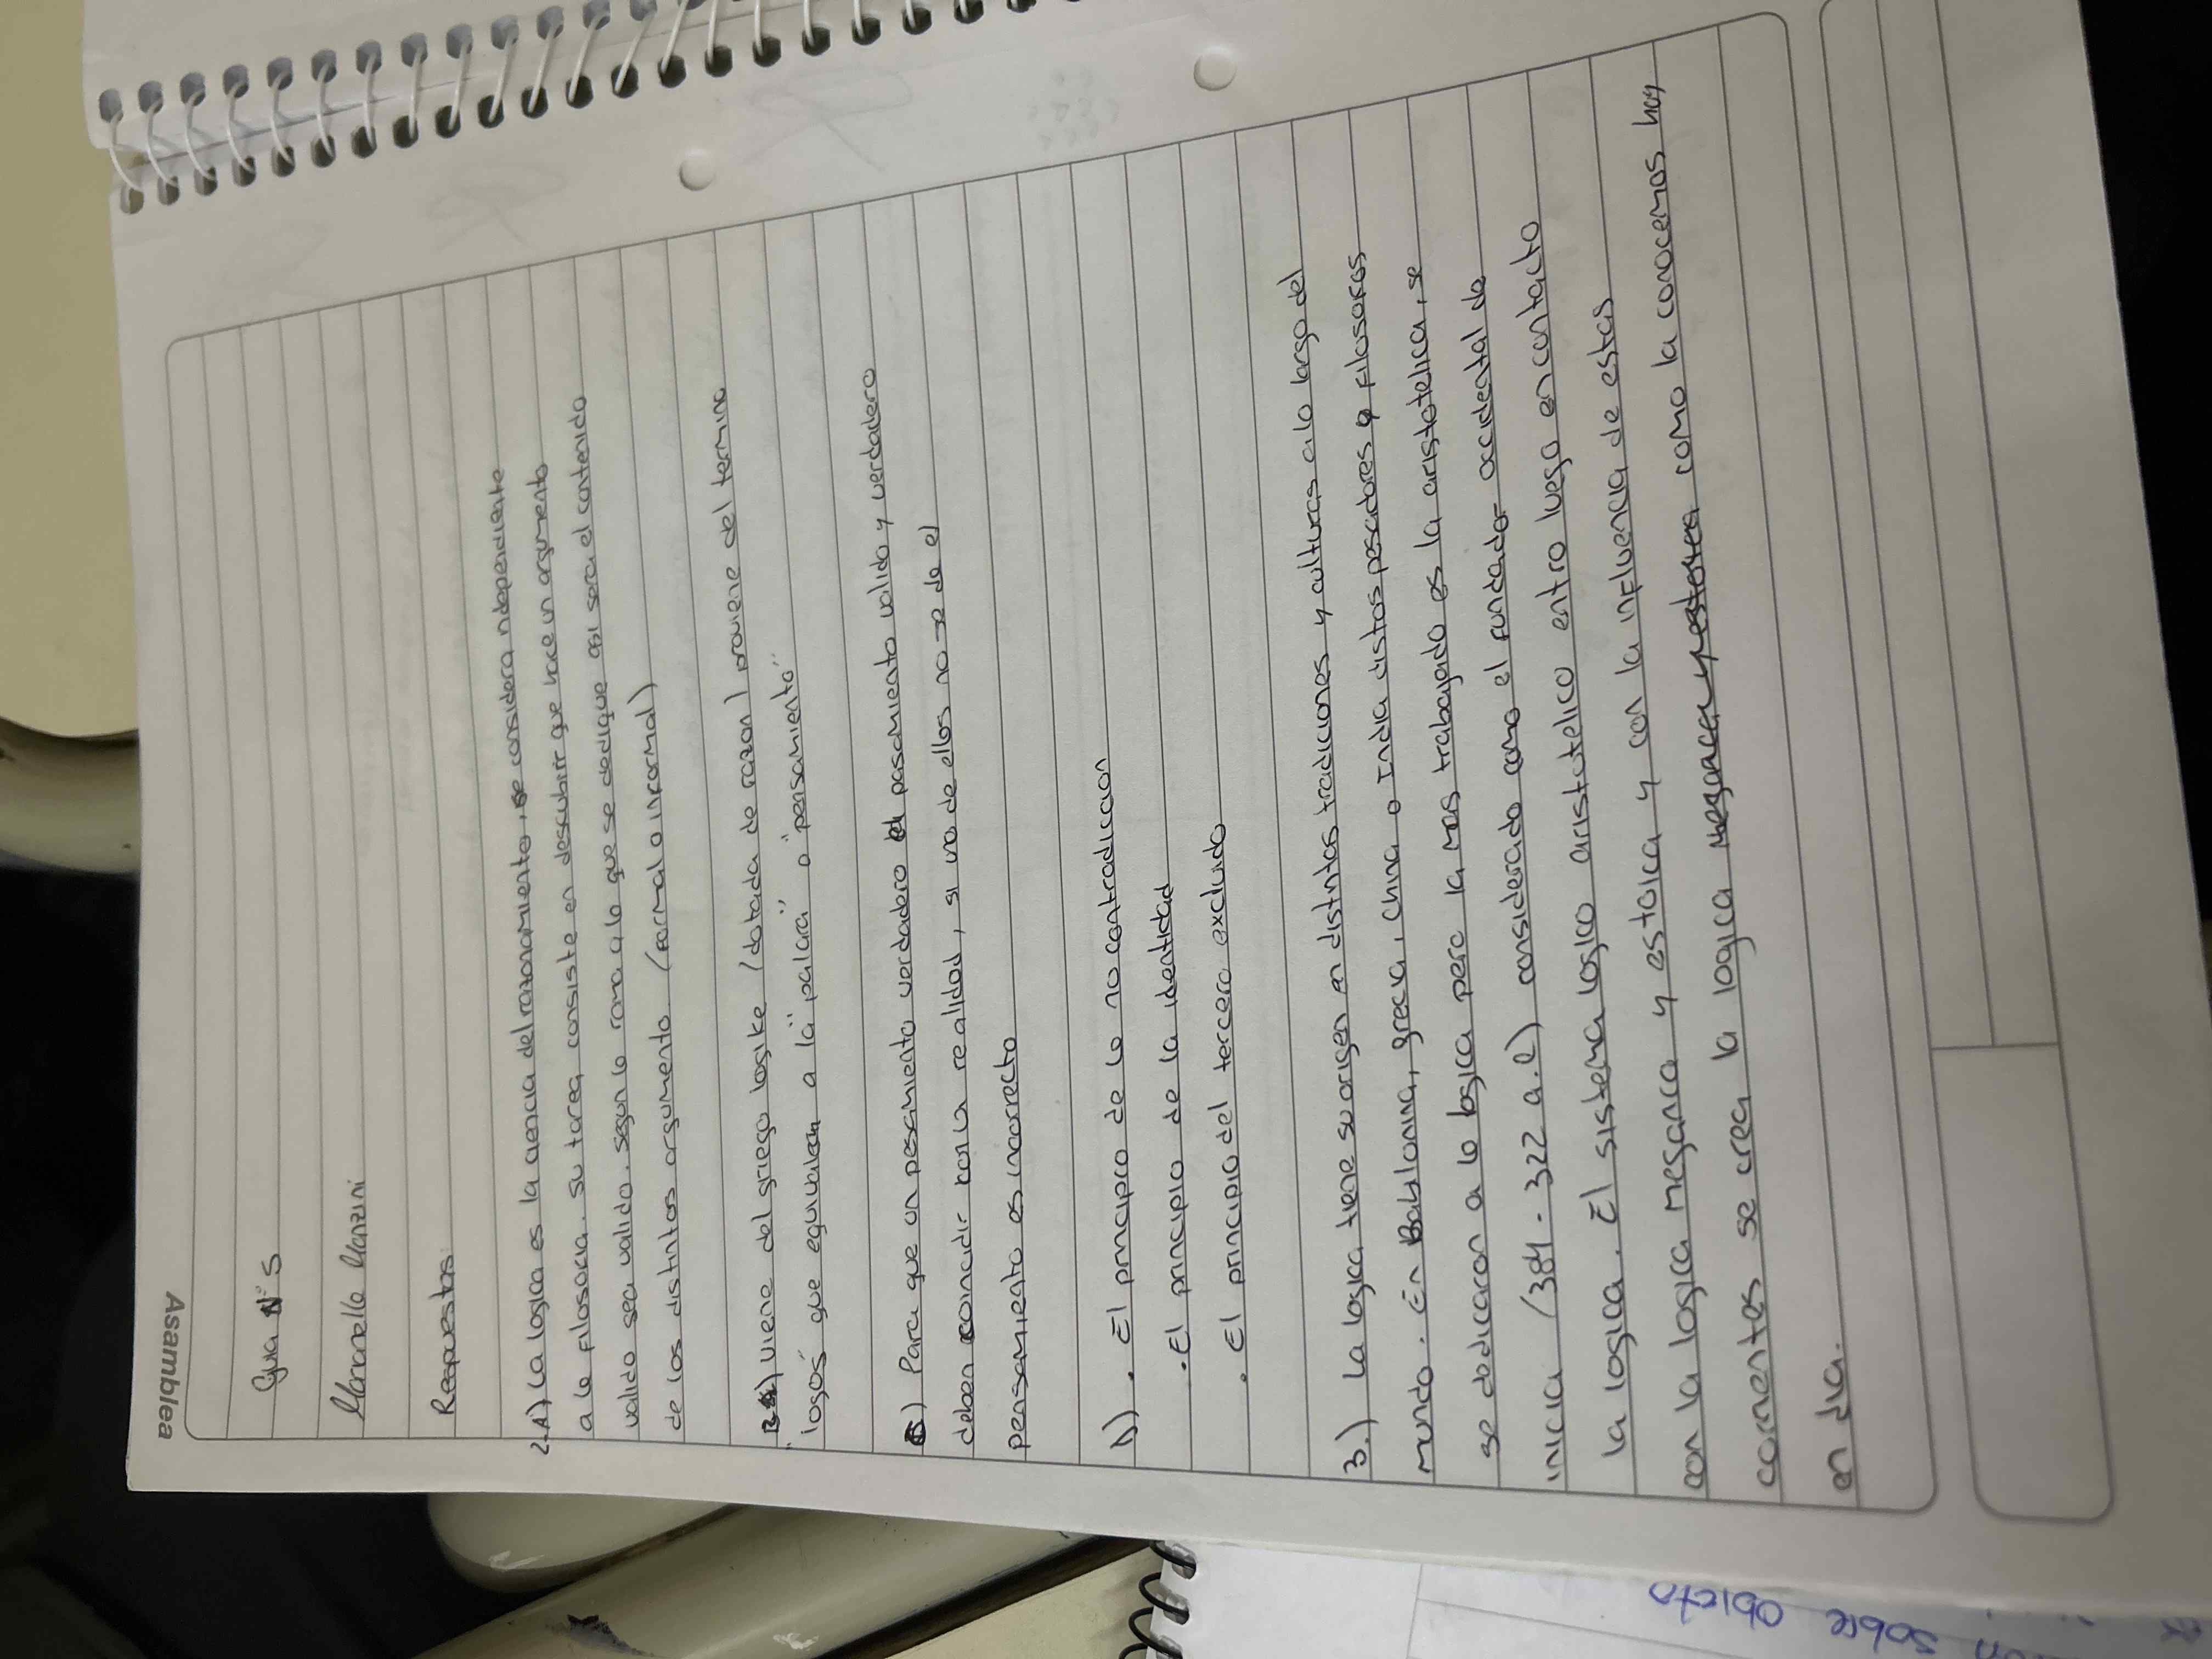 Asamblea
Guia N°5
Manzini
Respuestas:
2.A) La logica es la ciencia del razonamiento, se considera independiente
a la filosofia. su tarea consiste en descubrir que hace un argumento
valido sea valido. segun la rama a la que se dedique asi sera el contenido
de los distintos argumento. (formal o informal)
B) viene del griego logike (dotada de razon) proviene del termino
"logos" que equivalen a la "palara" o "pensamiento"
C) Para que un pesamiento verdadero el pasamiento valido y verdadero
deben coincidir con la realidad, si uno de ellos no se da el
pensamiento es incorrecto
D) . El principio de la no contradiccion
. El principio de la identidad
. El principio del tercero excluido
3.) La logica tiene su origen en distintas tradiciones y culturas a lo largo del
mundo. En Babilonia, grecia, china o India distos pesadores y filosofos
se dedicaron a la logica pero la mas trabajada es la aristotelica, se
inicia (384 - 322 a.c) considerado como el fundador occidental de
la logica. El sistema logico aristotelico entro luego en contacto
con la logica megarica y estoica y con la influencia de estas
corrientes se crea la logica como la conocemos hoy
en dia.
sobre objeto